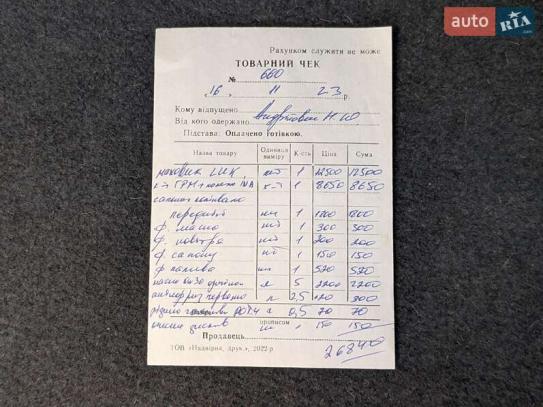 auto RIA
Рахунком служити не може
ТОВАРНИЙ ЧЕК
№ 660
" 16 " 11 23 р.
Кому відпущено
Від кого одержано
Підстава: Оплачено готівкою.
Назва товару Одиниця виміру К-сть Ціна Сума
маховик LUK шт 1 12500 12500
к-т ГРМ + к-т 1 8650 8650
сальник колінвала
передній шт 1 1800 1800
ф. масла шт 1 300 300
ф. повітря шт 1 200 200
ф. салону шт 1 150 150
ф палива шт 1 520 520
масло 5w30 л 5 2200 2200
антифриз л 2,5 120 300
DOT4 л 0,5 70 70
прописом
шт 1 150 150
Продавець
26840
ТОВ «Надвірна, друк.», 2022-р